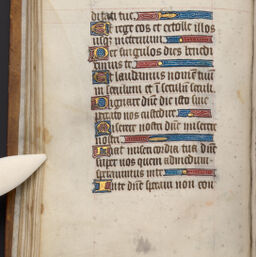 ditati tue.
Et rege eos et extolle illos
usq; in eternum.
Per singulos dies benedi
cimus te.
Et laudamus nomen tuu
in seculum et i seculum seculi.
Dignare dne die isto sine
peccato nos custodire.
Miserere nostri dne miserere
nostri.
Fiat misericordia tua dne
super nos quemadmodum
sperauimus in te.
In te dne speraui non con